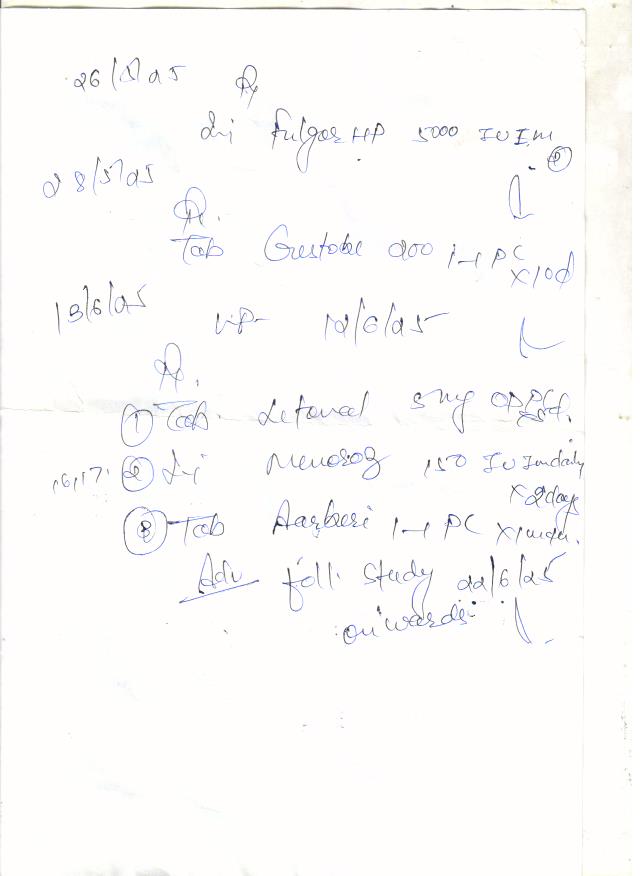 26/5/25 Rx
Inj Fulgor HP 5000 IU IM
28/5/25
Rx.
Tab Gestobe 200 1-1 PC
x10d
13/6/25 LMP- 12/6/25
Rx.
① Tab. Letoval 5mg OD PC
16,17, ② Inj Menorog 150 IU Im daily
x 2days
③ Tab Aarberi 1-1 PC x 1
Adv foll. study 22/6/25
onwards.